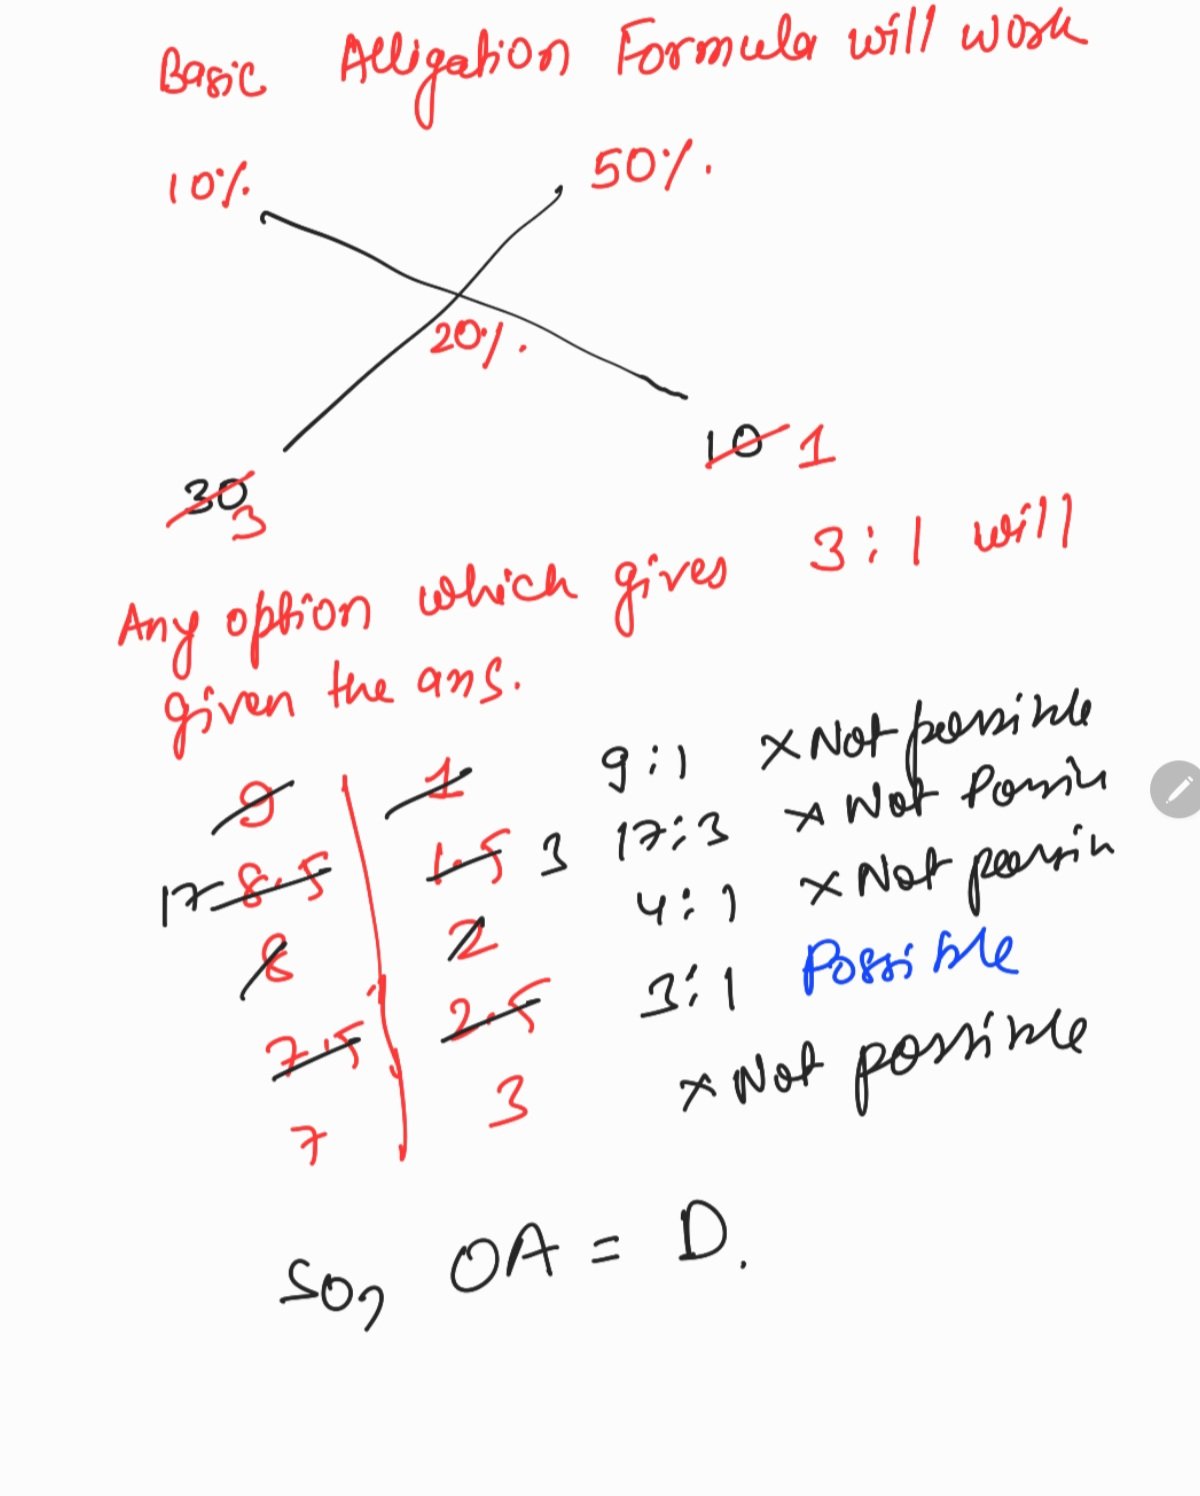 Basic Alligation Formula will work
10%. 50%.
20%.
30 3 10 1
Any option which gives 3:1 will
given the ans.
9 1 9:1 × Not possible
17 8.5 1.5 3 17:3 × Not
8 2 4:1 × Not
7.5 2.5 3:1 Possible
7 3 × Not possible
So, OA = D.